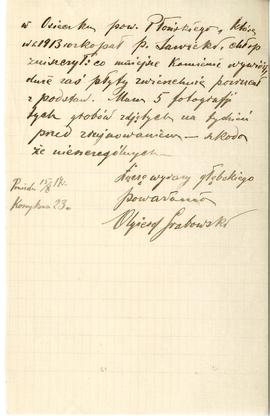 w Osieku, pow. Płońskiego, które
w r. 1913 wykopał p. Sawicki, chłop
zniszczył: co mniejsze kamienie wywiózł,
duże zaś płyty zwierzchnie pozrucał
z podstaw. Mam 5 fotografji
tych grobów zdjętych na tydzień
przed zrujnowaniem – szkoda
że nieszczególnych –
Łączę wyrazy głębokiego
poważania
Olgierd Grabowski
15/8 17 r.
23 m